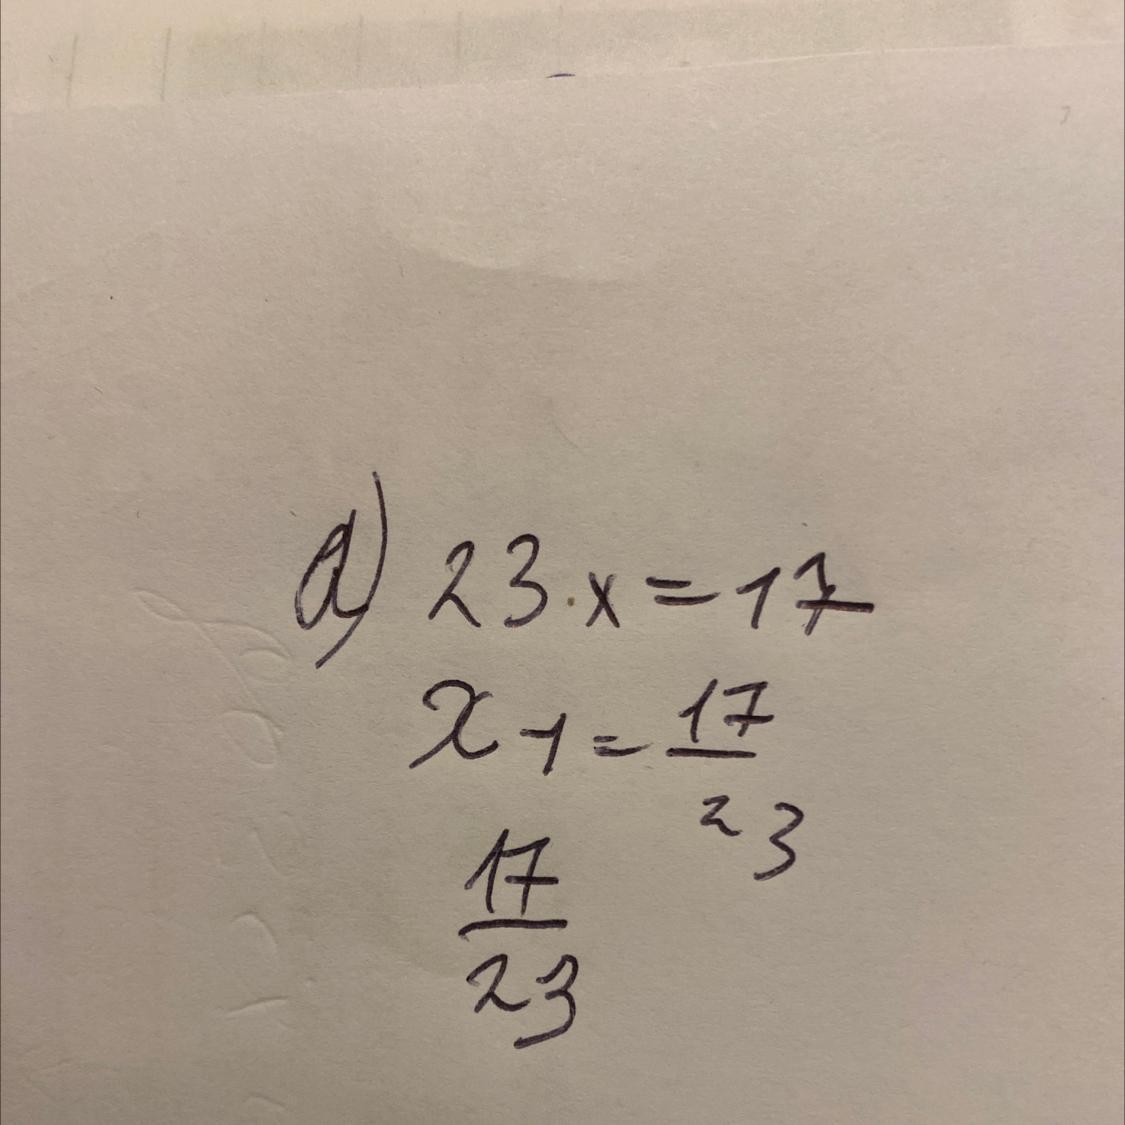 a) 23 · x = 17
x -1 = 17/23
17/23